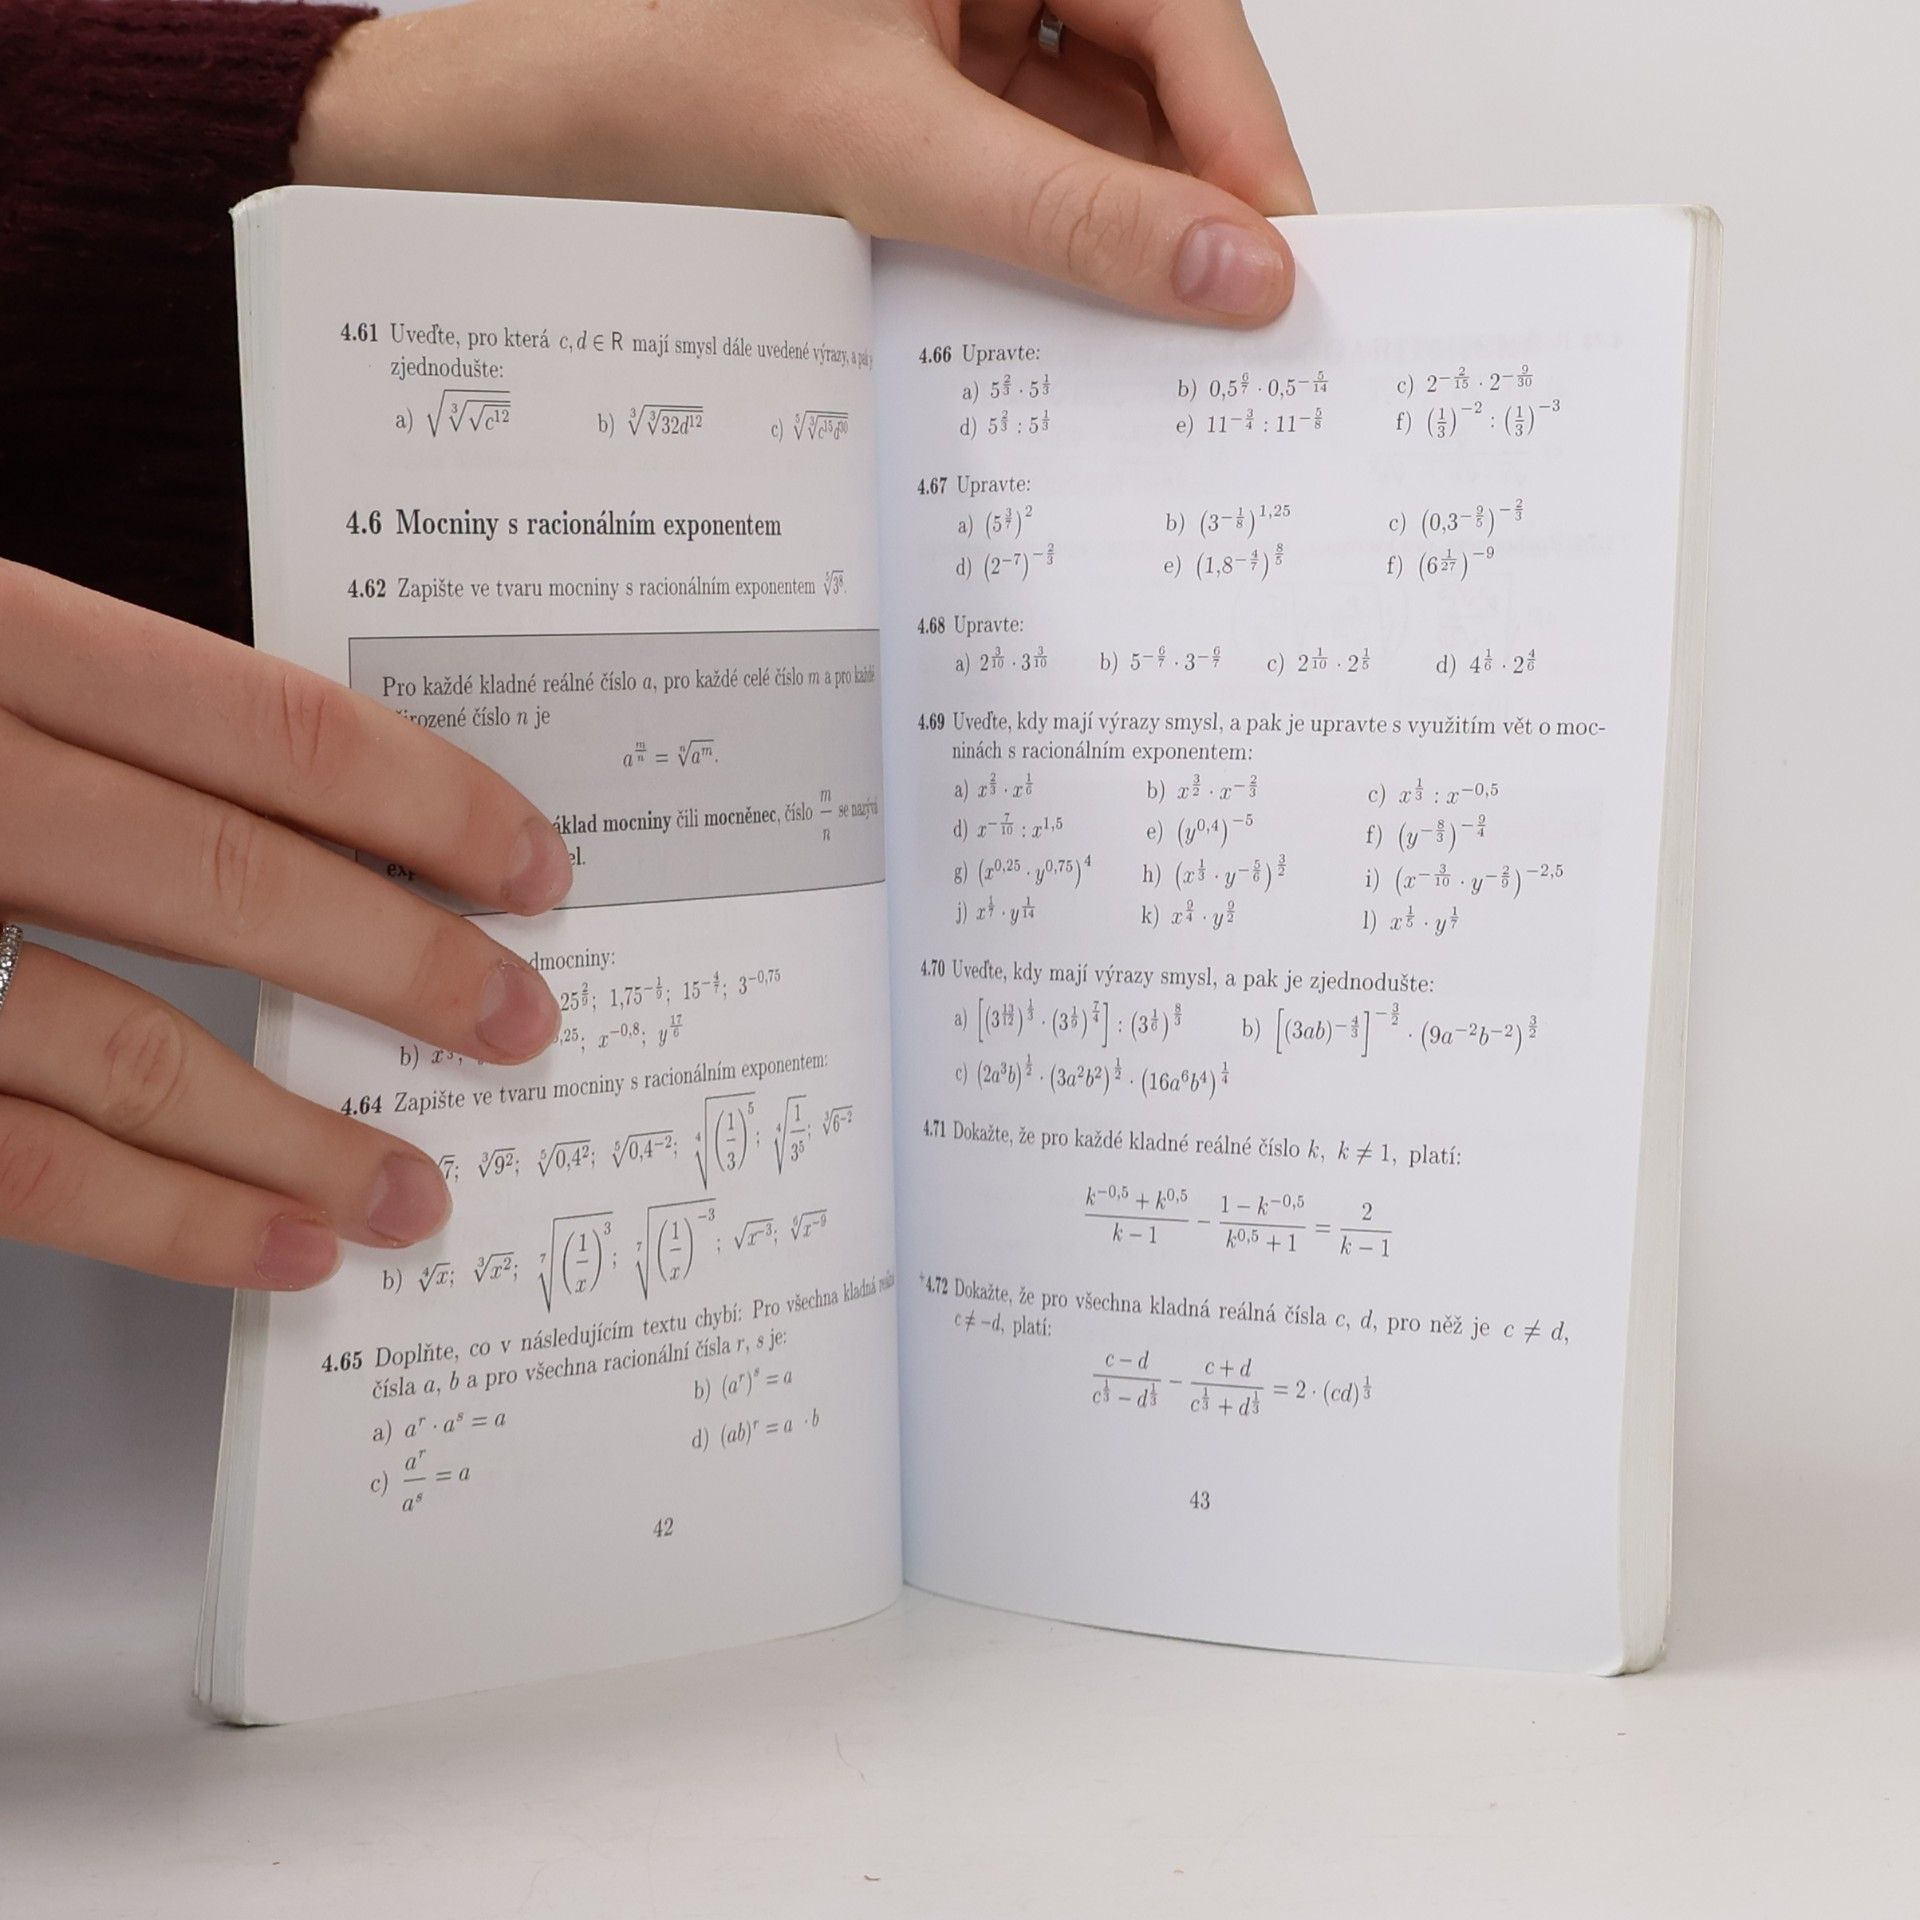 4.61 Uveďte, pro která c, d ∈ R mají smysl dále uvedené výrazy, a pak je
zjednodušte:
a) √(∛(√(c¹²))) b) ∛(∛(32d¹²)) c) ⁵√(∛(c¹⁵d³⁰))
4.6 Mocniny s racionálním exponentem
4.62 Zapište ve tvaru mocniny s racionálním exponentem ⁵√(3⁸).
Pro každé kladné reálné číslo a, pro každé celé číslo m a pro každé
n je
a^(m/n) = ⁿ√(a^m).
mocniny čili mocněnec, číslo m/n se nazývá
25^(2/9); 1,75^(−1/9); 15^(−4/7); 3^(−0,75)
b) x^(−0,8); y^(17/6)
4.64 Zapište ve tvaru mocniny s racionálním exponentem:
∛(9²); ⁵√(0,4²); ⁵√(0,4⁻²); ⁴√((1/3)⁵); ⁴√(1/3⁵); ∛(6⁻²)
b) ⁴√x; ∛(x²); ⁷√((1/x)³); ⁷√((1/x)⁻³); √(x⁻³); ⁶√(x⁻⁹)
4.65 Doplňte, co v následujícím textu chybí: Pro všechna kladná reálná
čísla a, b a pro všechna racionální čísla r, s je:
a) a^r · a^s = a b) (a^r)^s = a
c) a^r/a^s = a d) (ab)^r = a · b
42
4.66 Upravte:
a) 5^(2/3) · 5^(1/3) b) 0,5^(6/7) · 0,5^(−5/14) c) 2^(−2/15) · 2^(−9/30)
d) 5^(2/3) : 5^(1/3) e) 11^(−3/4) : 11^(−5/8) f) (1/3)^(−2) : (1/3)^(−3)
4.67 Upravte:
a) (5^(3/7))^2 b) (3^(−1/8))^(1,25) c) (0,3^(−9/5))^(−2/3)
d) (2^(−7))^(−2/3) e) (1,8^(−4/7))^(8/5) f) (6^(1/27))^(−9)
4.68 Upravte:
a) 2^(3/10) · 3^(3/10) b) 5^(−6/7) · 3^(−6/7) c) 2^(1/10) · 2^(1/5) d) 4^(1/6) · 2^(4/6)
4.69 Uveďte, kdy mají výrazy smysl, a pak je upravte s využitím vět o moc-
ninách s racionálním exponentem:
a) x^(2/3) · x^(1/6) b) x^(3/2) · x^(−2/3) c) x^(1/3) : x^(−0,5)
d) x^(−7/10) : x^(1,5) e) (y^(0,4))^(−5) f) (y^(−8/3))^(−9/4)
g) (x^(0,25) · y^(0,75))^4 h) (x^(1/3) · y^(−5/6))^(3/2) i) (x^(−3/10) · y^(−2/9))^(−2,5)
j) x^(1/7) · y^(1/14) k) x^(9/4) · y^(9/2) l) x^(1/5) · y^(1/7)
4.70 Uveďte, kdy mají výrazy smysl, a pak je zjednodušte:
a) [(3^(13/12))^(1/3) · (3^(1/9))^(7/4)] : (3^(1/6))^(8/3) b) [(3ab)^(−4/3)]^(−3/2) · (9a^(−2)b^(−2))^(3/2)
c) (2a³b)^(1/2) · (3a²b²)^(1/2) · (16a⁶b⁴)^(1/4)
4.71 Dokažte, že pro každé kladné reálné číslo k, k ≠ 1, platí:
(k^(−0,5) + k^(0,5))/(k − 1) − (1 − k^(−0,5))/(k^(0,5) + 1) = 2/(k − 1)
*4.72 Dokažte, že pro všechna kladná reálná čísla c, d, pro něž je c ≠ d,
c ≠ −d, platí:
(c − d)/(c^(1/3) − d^(1/3)) − (c + d)/(c^(1/3) + d^(1/3)) = 2 · (cd)^(1/3)
43